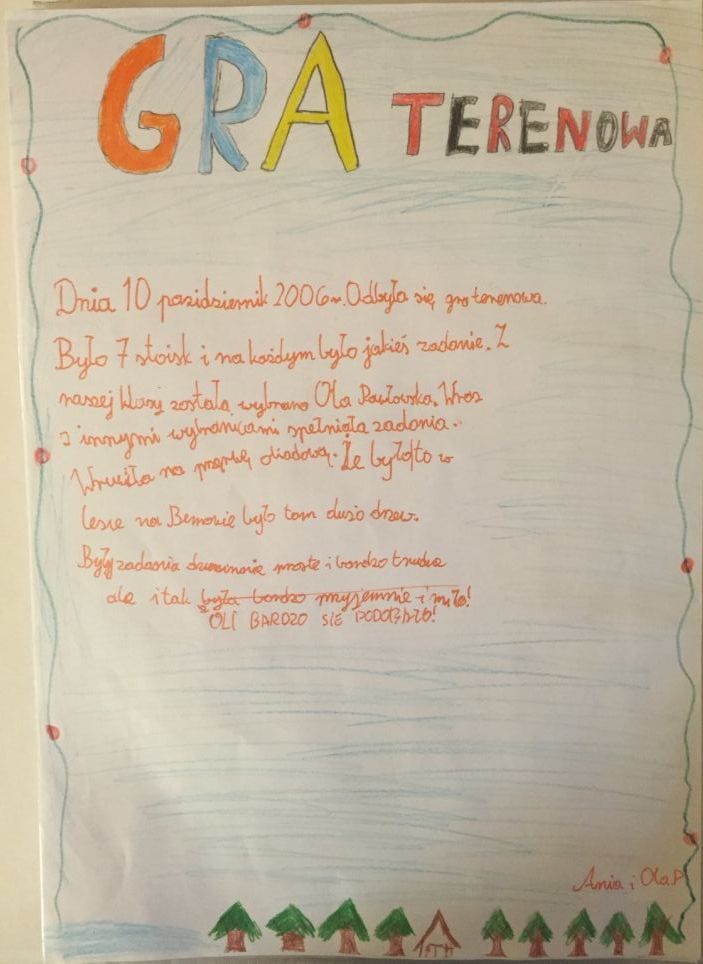 GRA TERENOWA
Dnia 10 pazidziernik 2006r. Odbyła się gra terenowa.
Było 7 stoisk i na każdym było jakieś zadanie. Z
naszej klasy została wybrana Ola Pawłowska. Wraz
z innymi wybrańcami spełniała zadania.
na Że było to w
lesie na Bemowie było tam dużo drzew.
Były zadania proste i bardzo trudne
ale i tak było bardzo przyjemnie i miło!
OLI BARDZO SIĘ PODOBAŁO!
Ania i Ola.P